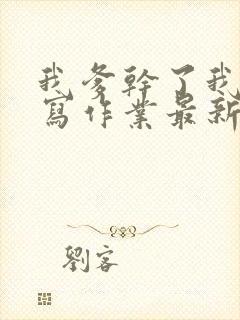 我爹幹了我
寫作業最新
劉客